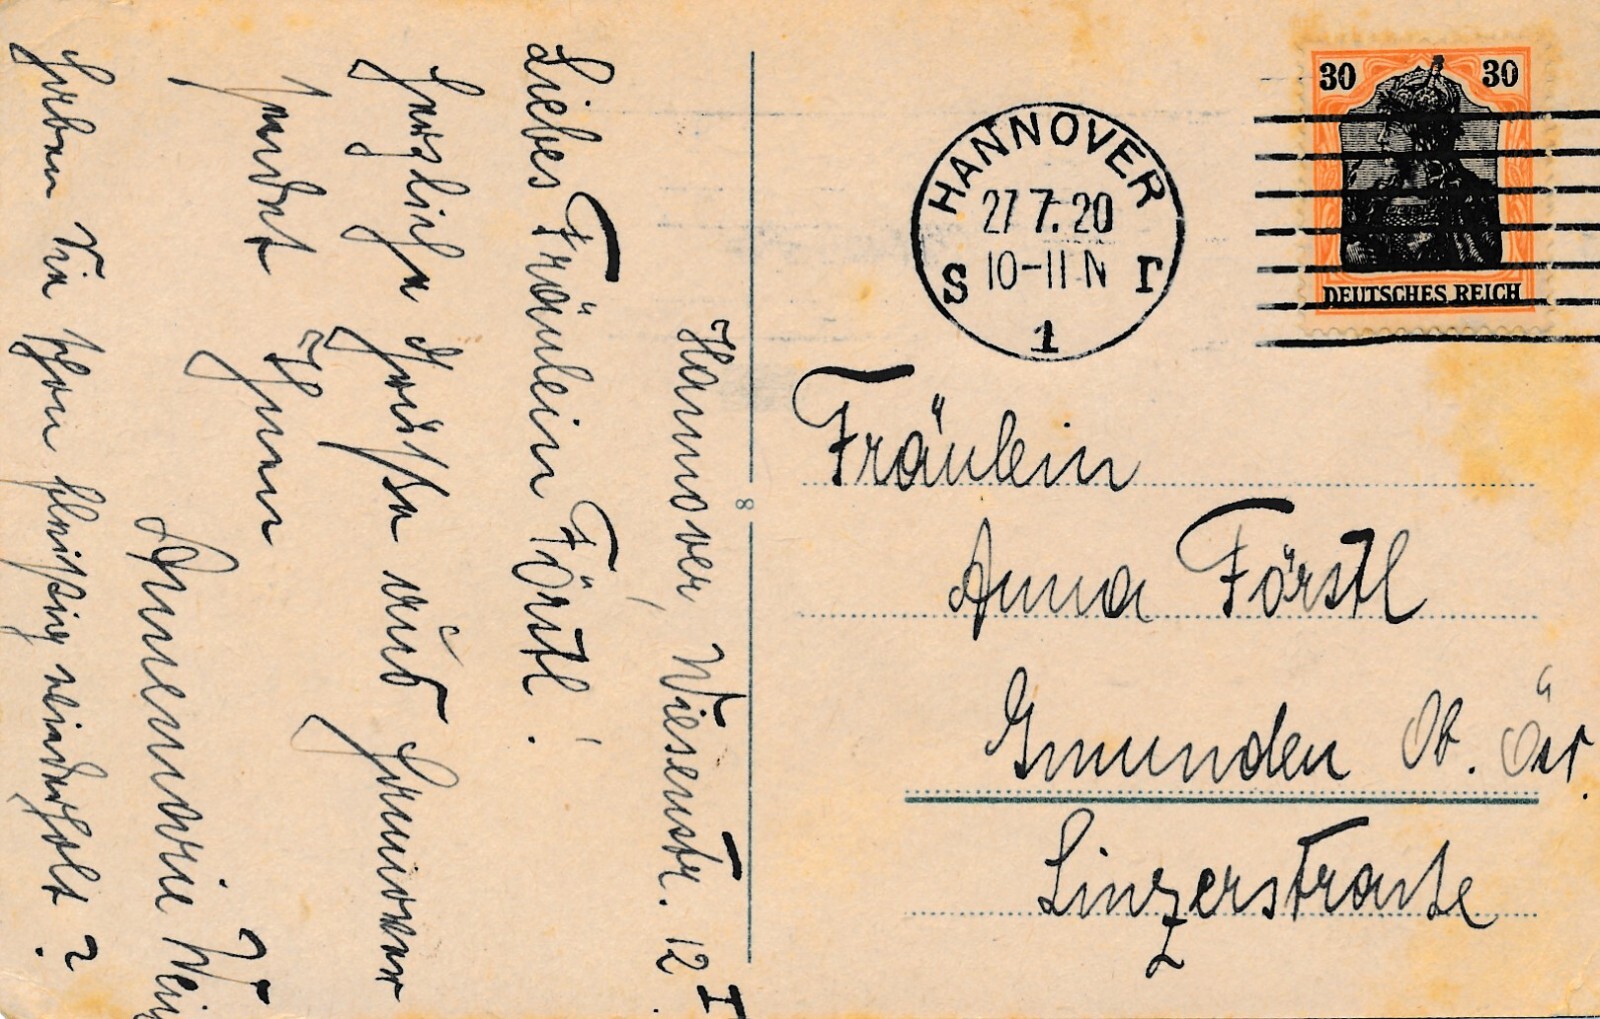 Hannover, Wiesenstr. 12 I.
Liebes Fräulein Förstl!
Herzliche Grüße aus Hannover
sendet Ihnen
Annemarie
Haben Sie schon fleißig wiederholt?
8
HANNOVER
27 7. 20
10-11 N
S 1
30 30
DEUTSCHES REICH
Fräulein
Anna Förstl
Gmunden Ob. Öst.
Linzerstraße